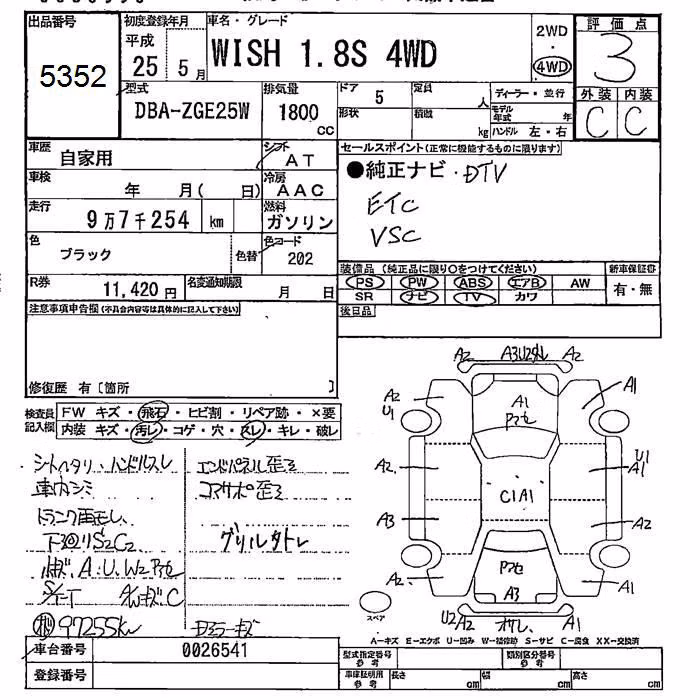 出品番号
5352
初度登録年月
平成
25 5月
車名・グレード
WISH 1.8S 4WD
2WD
・
4WD
評価点
3
外装 内装
C C
型式
DBA-ZGE25W
排気量
1800
cc
ドア
5
定員
人
形状
積載
kg
ディーラー・並行
モデル年式 年
ハンドル 左・右
車歴
自家用
シフト
AT
車検
年 月( 日)
冷房
AAC
走行
9万7千254 km
燃料
ガソリン
色
ブラック
色替
色コード
202
R券
11,420円
名変通知期限
月 日
セールスポイント(正常に機能するものに限ります)
●純正ナビ・DTV
ETC
VSC
装備品(純正品に限り〇をつけてください)
新車保証書
PS PW ABS エアB AW
SR ナビ TV カワ
有・無
後日品
注意事項申告欄(不具合内容等は具体的に記入して下さい)
修復歴 有〔箇所 〕
検査員
記入欄
FW キズ・飛石・ヒビ割・リペア跡・×要
内装 キズ・汚レ・コゲ・穴・スレ・キレ・破レ
シートヘタリ ハンドルスレ
車内シミ
エンドパネル歪ミ
コアサポ歪ミ
グリルタトレ
S2C2
A:U.W2
97255km
ドアミラーキズ
A2
A2
A2
U1
A1
A1
A2
U1
A1
C1A1
A3
A2
A2
A3
A1
U2 A2
A1
スペア
A-キズ E-エクボ U-凹み W-補修跡 S-サビ C-腐食 XX-交換済
車台番号
0026541
登録番号
型式指定番号
参考
類別区分番号
参考
車庫証明用
参考
長さ cm
幅 cm
高さ cm